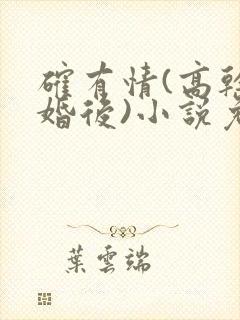 確有情(高幹
婚後)小說免
葉雲端